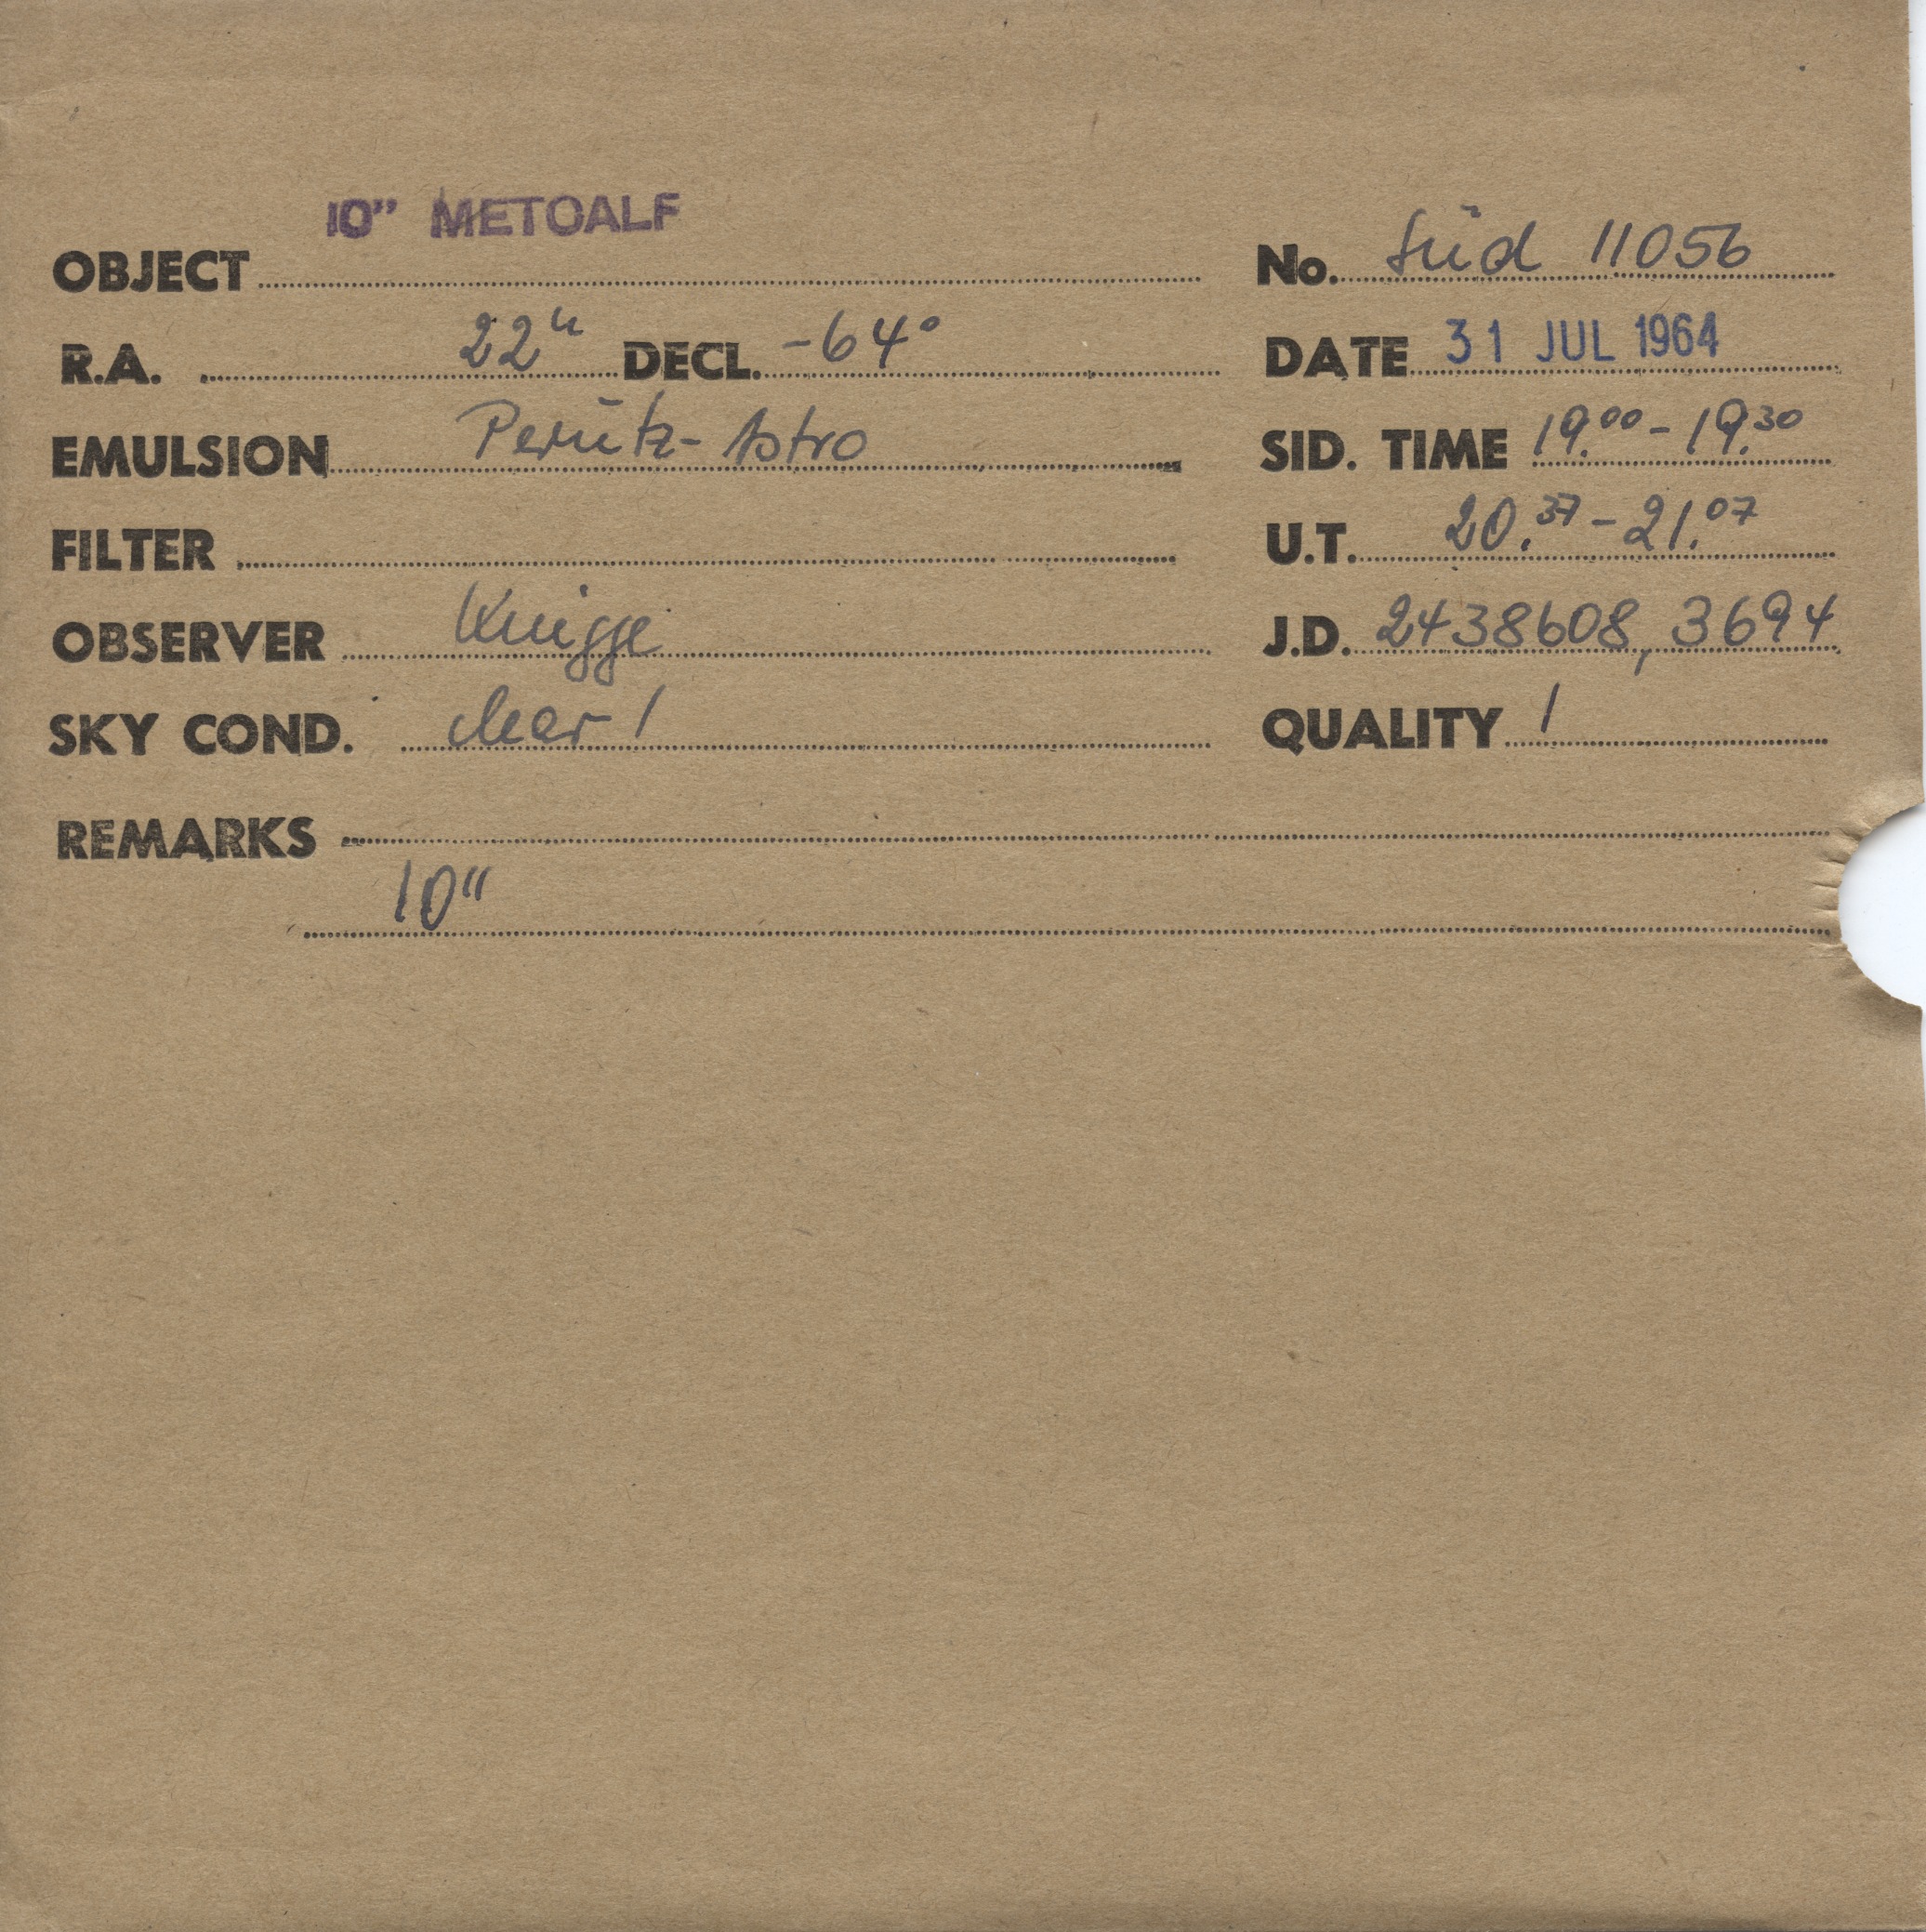 10" METCALF
OBJECT No. Süd 11056
R.A. 22h DECL. -64° DATE 31 JUL 1964
EMULSION Perutz-Astro SID. TIME 19.00 - 19.30
FILTER U.T. 20.37 - 21.07
OBSERVER Knigge J.D. 2438608,3694
SKY COND. clear 1 QUALITY 1
REMARKS
10"